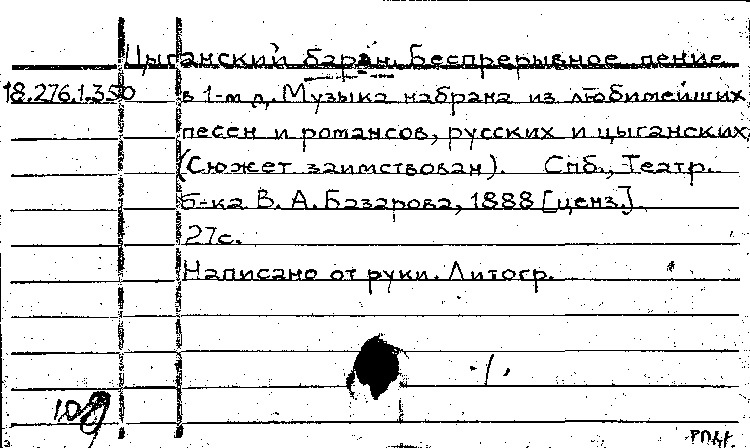 Цыганский баран. Беспрерывное пение
18.276.1.350 в 1-м д. Музыка набрана из любимейших
песен и романсов, русских и цыганских
(Сюжет заимствован). Спб., Театр.
б-ка В. А. Базарова, 1888 [ценз.].
27с.
Написано от руки. Литогр.